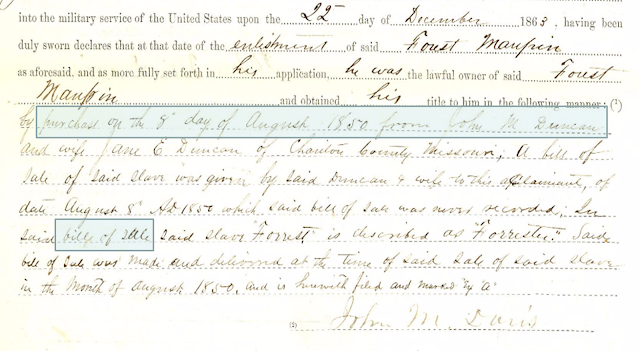 into the military service of the United States upon the 22 day of December 1863, having been
duly sworn declares that at that date of the enlistment of said Forest Maupin
as aforesaid, and as more fully set forth in his application, he was the lawful owner of said Forest
Maupin and obtained his title to him in the following manner: (¹)
by purchase on the 8" day of August 1850 from John M Duncan
and wife Jane E Duncan of Chariton County Missouri; A bill of
Sale of said slave was given by said Duncan & wife to this Claimant, of
date August 8" AD 1850 which said bill of sale was never recorded; In
said bill of sale said slave Forrest is described as Forrester." Said
bill of sale was made and delivered at the time of said sale of said slave
in the Month of August 1850. And is herewith filed and marked by "a"
(²) John M. Davis